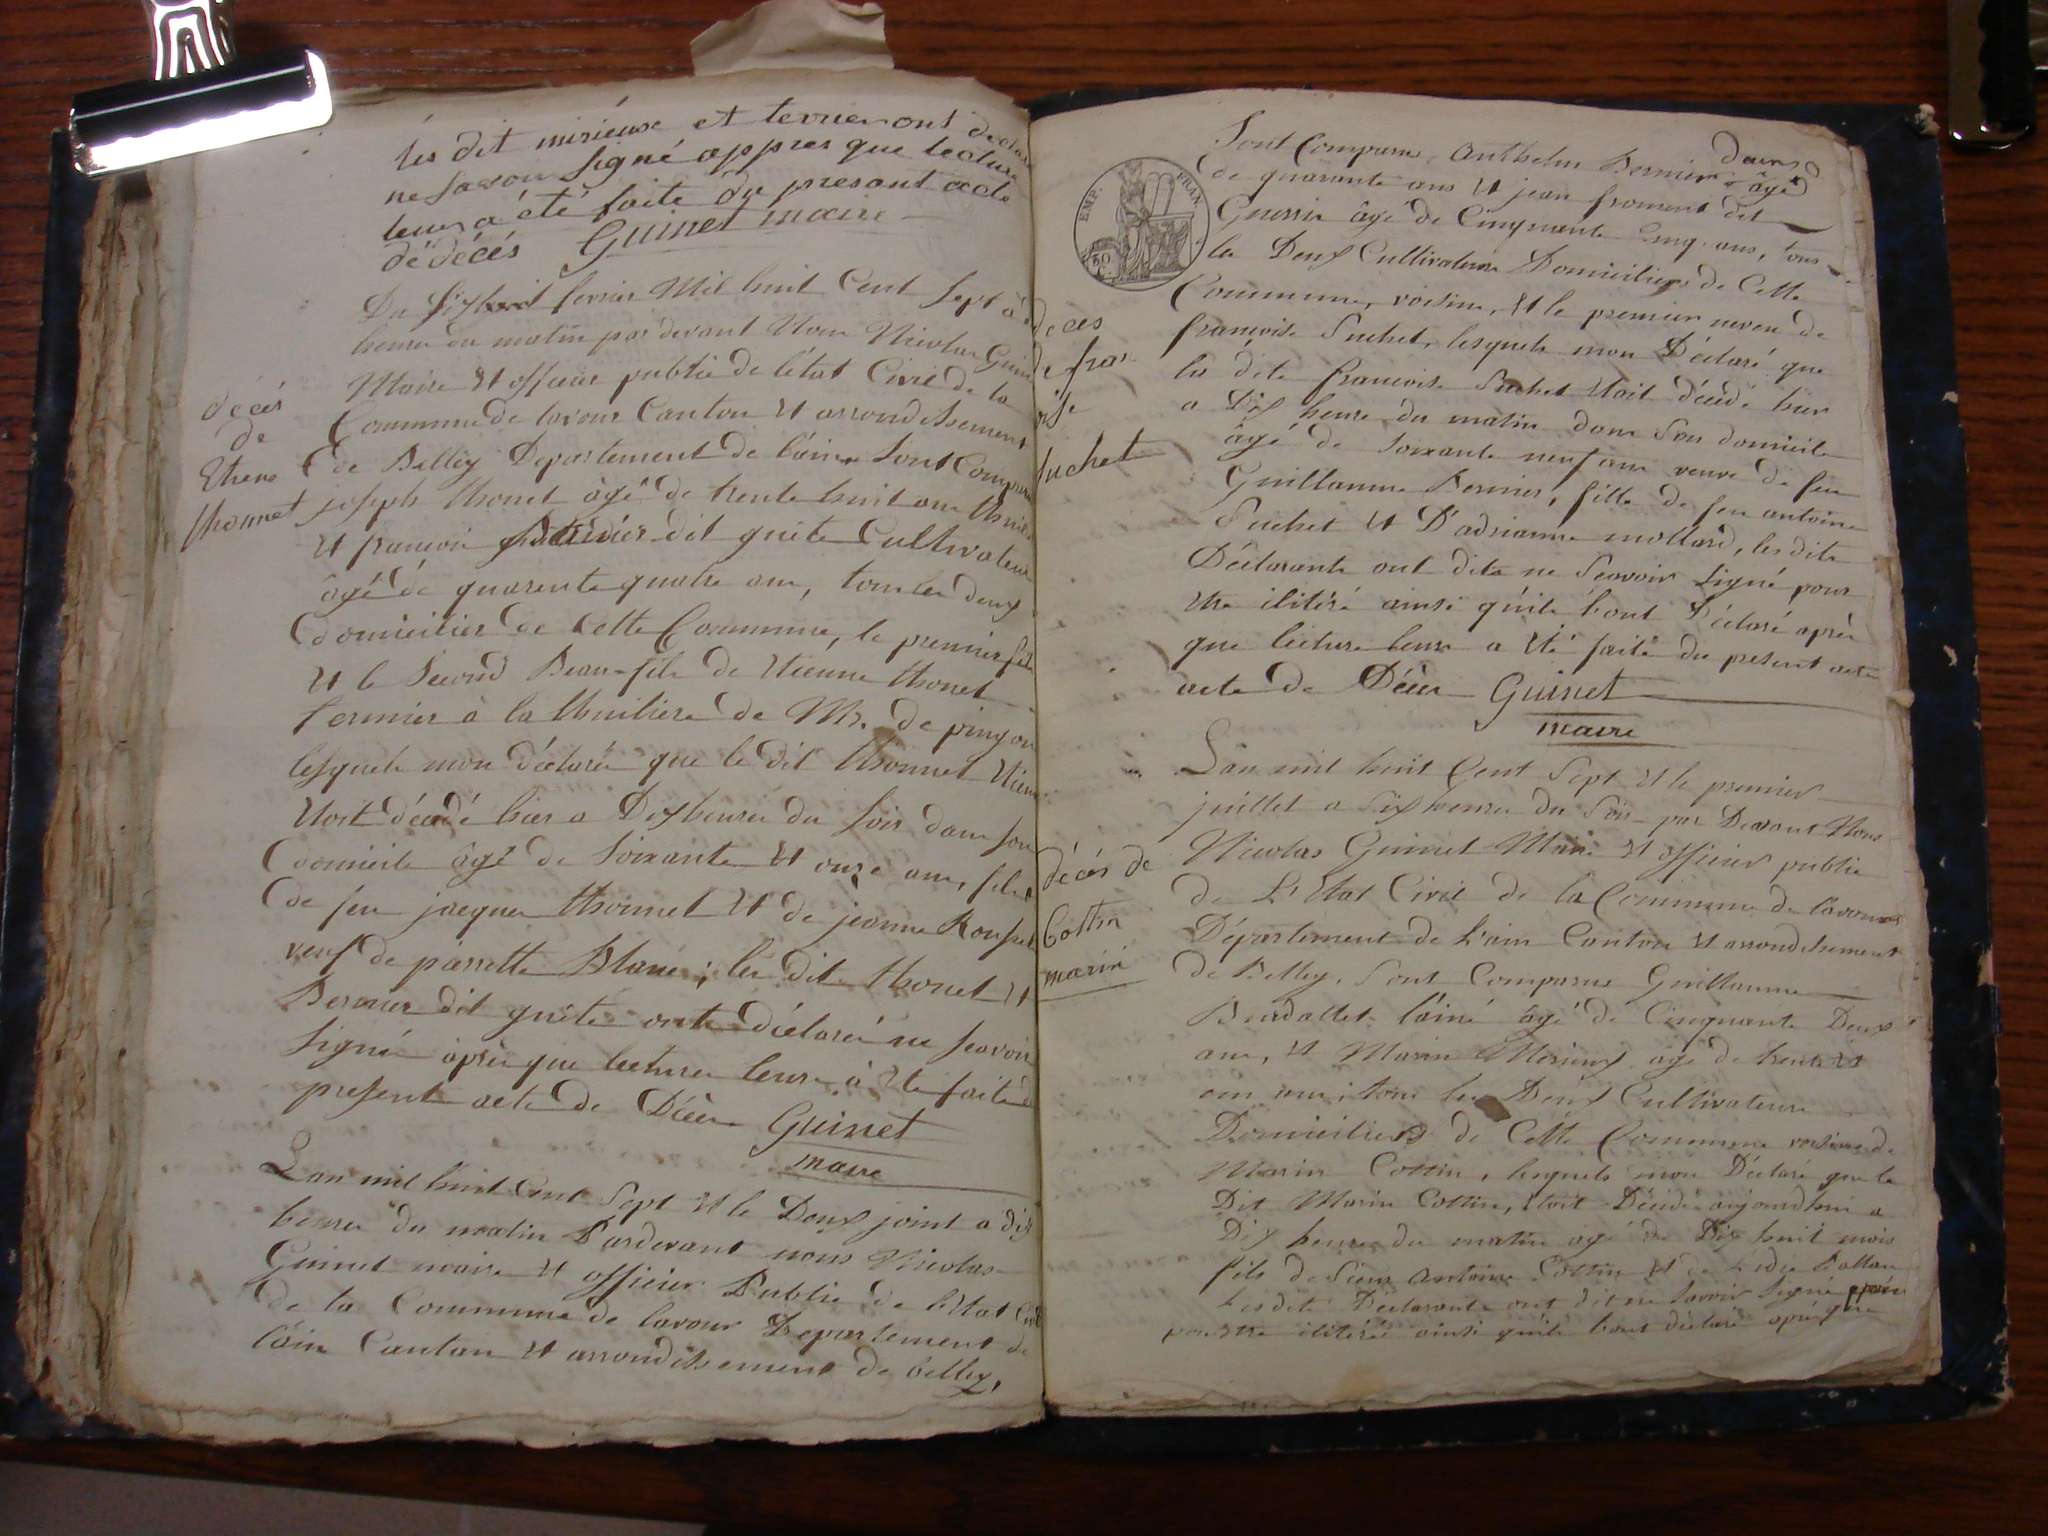 les dit mirieux et terrier ont declaré
ne savoir signé appres que lecture
leur a été faite du present acte
dé décés Guinet maire
Du fevrier Mil huit Cent Sept à
heures du matin par devant Nous Nicolas Guinet
Maire et officier public de l'état Civil de la
Commune de lavour Canton et arrondissement
de Belley Departement de l'ain, Sont Comparu
joseph thonet âgé de trente huit ans
et francois Bernier dit guite Cultivateur
âgé de quarente quatre ans, tous les deux
domicilier de Cette Commune, le premier fils
et le Second Beau-fils de Etienne thonet
fermier à la thuiliere de Mr. de pingon
lesquels mon déclaré que le dit thonnet Etienne
Etoit décédé hier a Dix heures du Soir dans son
domicile âgé de Soixante et onze ans, fils
de feu jacques thonnet et de jeanne
veuf de pierrette Blanc; les dits thonet et
Bernier dit guite ont déclaré ne Scavoir
Signé après que lecture leurs à été faite
present acte de Décès Guinet
maire
L'an mil huit Cent Sept et le Deux joint a dix
heures du matin Pardevant nous Nicolas
Guinet maire et officier Public de l'Etat Civil
de la Commune de lavour Departement de
l'ain Canton et arrondissement de belley,
décés
de
Etiene
thonnet
EMP. FRAN.
50
C.
Sont Comparus Anthelme Bernier dains âgé
de quarante ans et jean froment dit
Guerrin âgé de Cinquante Cinq ans, tous
les Deux Cultivateurs Domiciliers de Cette
Commune, voisins, et le premier neveu de
francoise Suchet, lesquels mon Déclaré que
la dite francoise Suchet Etoit décédé hier
a Dix heures du matin dans Son domicile
âgé de Soixante neuf ans veuve de feu
Guillaume Bernier, fille de feu antoine
Suchet et D'adrianne mollard, les dits
Déclarants ont dits ne Scavoir Signé pour
etre ilitéré ainsi qu'ils l'ont Déclaré après
que lecture leurs a été faite du present acte
acte de Décès Guinet
maire
décés
de fran
coise
Suchet
L'an mil huit Cent Sept et le premier
juillet a Six heures du Soir par Devant Nous
Nicolas Guinet Maire et officier public
de L'Etat Civil de la Commune de lavours
Département de L'ain Canton et arrondissement
de Belley, Sont Comparus Guillaume
Burdallet l'ainé âgé de Cinquante Deux
ans, et Marin Merieux agé de trente et
un ans, tous les Deux Cultivateurs
Domiciliers de Cette Commune voisins de
Marin Cottin, lesquels mon Déclaré que le
Dit Marin Cottin, Etoit Décédé aujourdhui a
Dix heures du matin agé de Dix huit mois
fils de Sieur Antoine Cottin et de Lidie
Les dits Declarants ont dit ne Savoir Signé
pour etre ilitéré ainsi qu'ils l'ont declaré après que
décés de
Cottin
marin